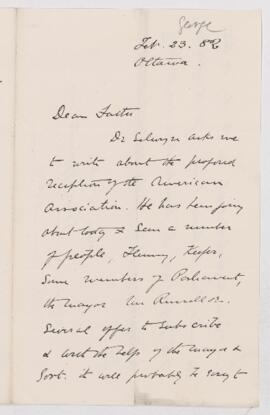 George
Feb. 23. 82
Ottawa.
Dear Father
Dr Selwyn asks me
to write about the proposed
reception of the American
Association. He has been going
about today & seen a number
of people, Fleming, Keefer,
some members of Parliament,
the mayor &c.
Several offer to subscribe
& with the help of the mayor &
Govt. it will probably be easy to